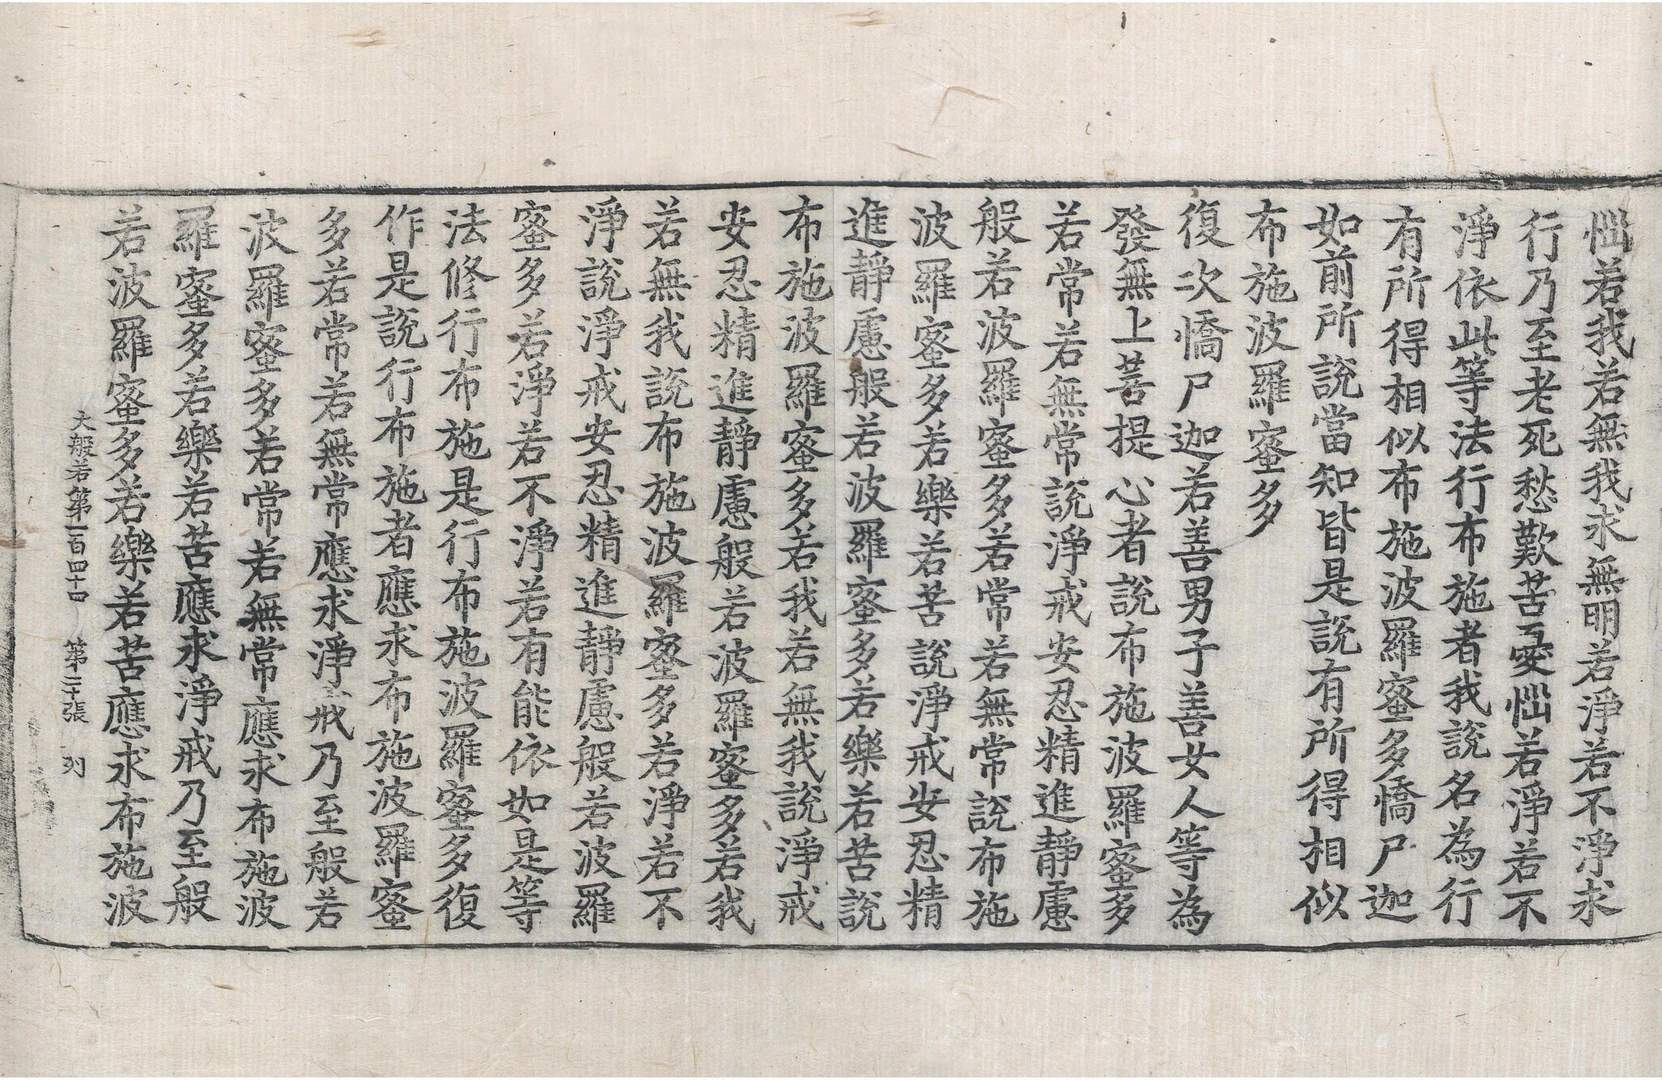 惱若我若無我求無明若淨若不淨求
行乃至老死愁歎苦憂惱若淨若不
淨依此等法行布施者我說名為行
有所得相似布施波羅蜜多憍尸迦
如前所說當知皆是說有所得相似
布施波羅蜜多
復次憍尸迦若善男子善女人等為
發無上菩提心者說布施波羅蜜多
若常若無常說淨戒安忍精進靜慮
般若波羅蜜多若常若無常說布施
波羅蜜多若樂若苦說淨戒安忍精
進靜慮般若波羅蜜多若樂若苦說
布施波羅蜜多若我若無我說淨戒
安忍精進靜慮般若波羅蜜多若我
若無我說布施波羅蜜多若淨若不
淨說淨戒安忍精進靜慮般若波羅
蜜多若淨若不淨若有能依如是等
法修行布施是行布施波羅蜜多復
作是說行布施者應求布施波羅蜜
多若常若無常應求淨戒乃至般若
波羅蜜多若常若無常應求布施波
羅蜜多若樂若苦應求淨戒乃至般
若波羅蜜多若樂若苦應求布施波
大般若第一百四十四 第二十張 列